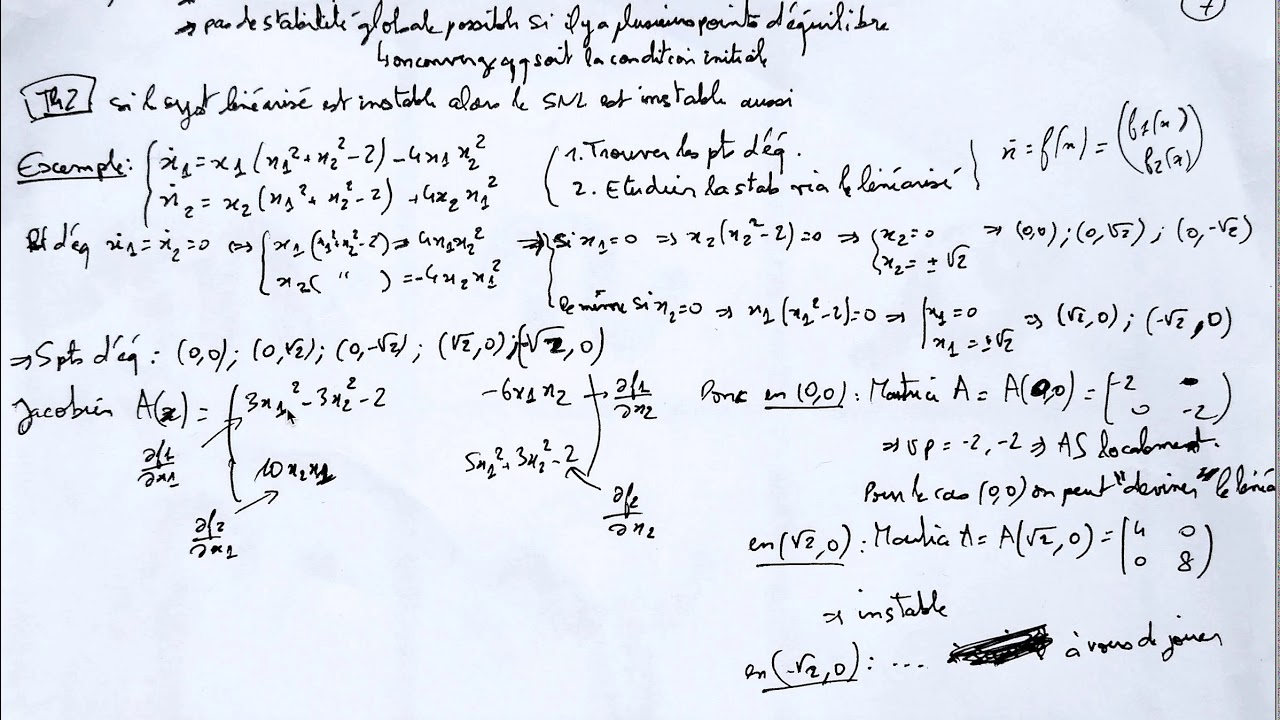 7
→ pas de stabilité globale possible si il y a plusieurs points d'équilibre
↳ on converge qq soit la condition initiale
Th2 si le syst linéarisé est instable alors le SNL est instable aussi
Exemple: { ẋ1 = x1 (x1² + x2² - 2) - 4x1 x2²
ẋ2 = x2 (x1² + x2² - 2) + 4x2 x1²
( 1. Trouver les pt d'éq.
2. Etudier la stab via le linéarisé }
ẋ = f(x) = ( f1(x)
f2(x) )
Pt d'éq ẋ1 = ẋ2 = 0 ⇔ { x1 (x1² + x2² - 2) = 4x1x2²
x2 ( " ) = -4x2x1²
⇒ { Si x1 = 0 ⇒ x2 (x2² - 2) = 0 ⇒ { x2 = 0
x2 = ± √2
⇒ (0,0) ; (0,√2) ; (0,-√2)
De même si x2 = 0 ⇒ x1 (x1² - 2) = 0 ⇒ { x1 = 0
x1 = ±√2
⇒ (√2,0) ; (-√2,0)
⇒ 5 pts d'éq : (0,0) ; (0,√2) ; (0,-√2) ; (√2,0) ; (-√2,0)
Jacobien A(x) = ( 3x1² - 3x2² - 2 -6x1x2 → ∂f1/∂x2
∂f1/∂x1 10x2x1 5x1² + 3x2² - 2 )
∂f2/∂x1 ∂f2/∂x2
Donc en (0,0) : Matrice A = A(0,0) = ( -2 0
0 -2 )
⇒ vp = -2, -2 ⇒ AS localement.
Pour le cas (0,0) on peut "deviner" le linéa
en (√2,0) : Matrice A = A(√2,0) = ( 4 0
0 8 )
⇒ instable
en (-√2,0) : ... à vous de jouer